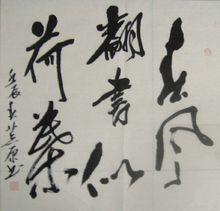 春风
翻書似
荷葉
壬辰